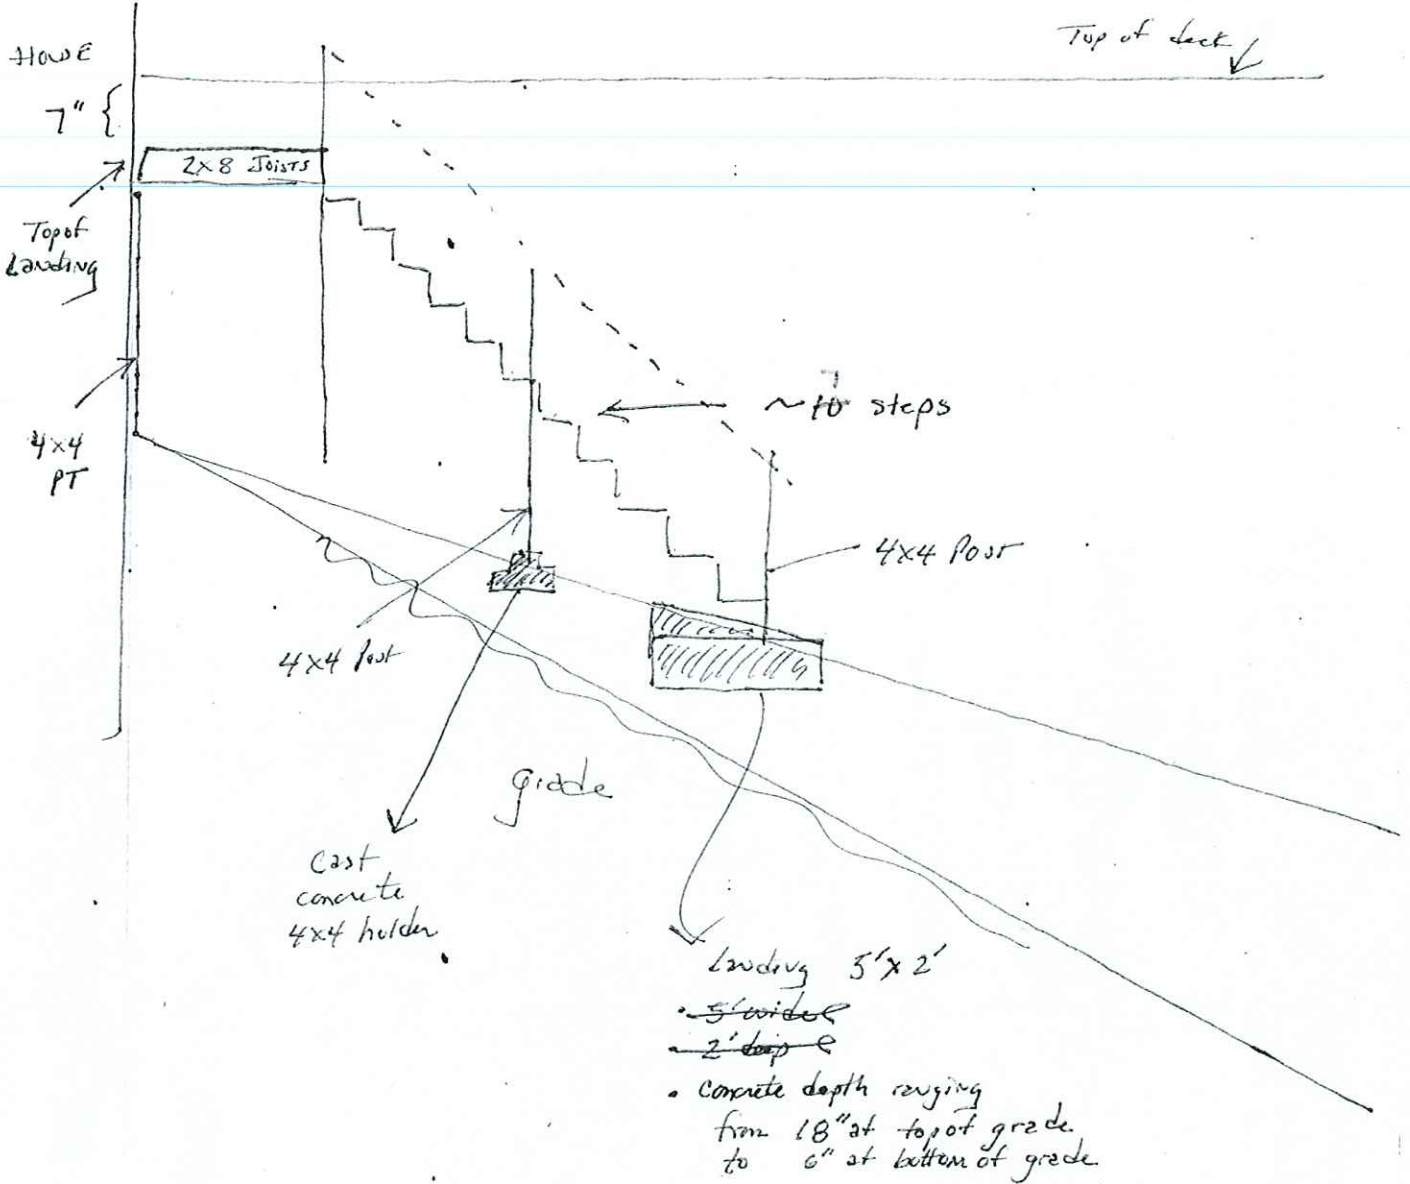 HOUSE
Top of deck
7"
2x8 Joists
Top of
Landing
~ 10 steps
4x4
PT
4x4 Post
4x4 Post
grade
Cast
concrete
4x4 holder
Landing 5'x2'
• 5' wide
• 2' deep
• Concrete depth ranging
from 18" at top of grade
to 6" at bottom of grade